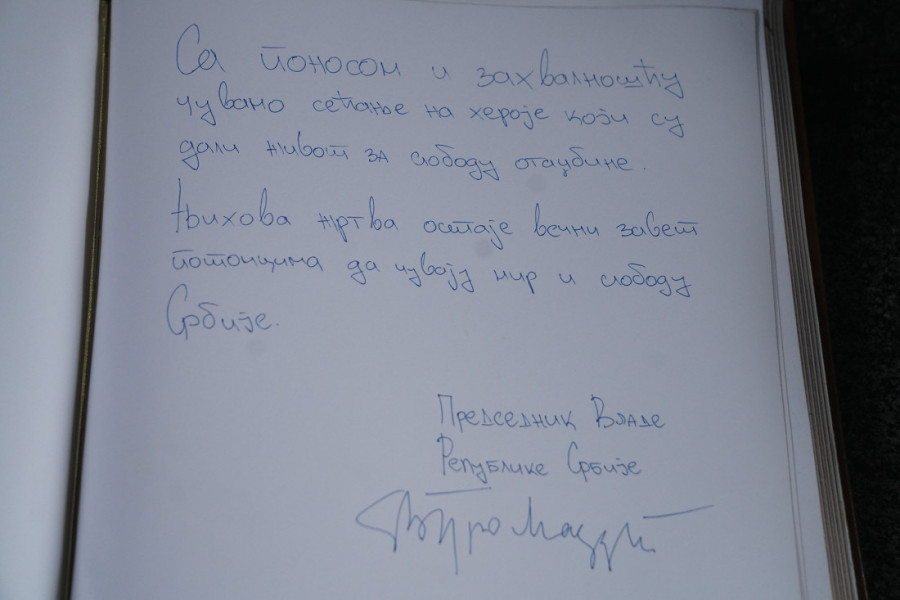 Са поносом и захвалношћу
чувамо сећање на хероје који су
дали живот за слободу отаџбине.
Њихова жртва остаје вечни завет
потомцима да чувају мир и слободу
Србије.
Председник Владе
Републике Србије